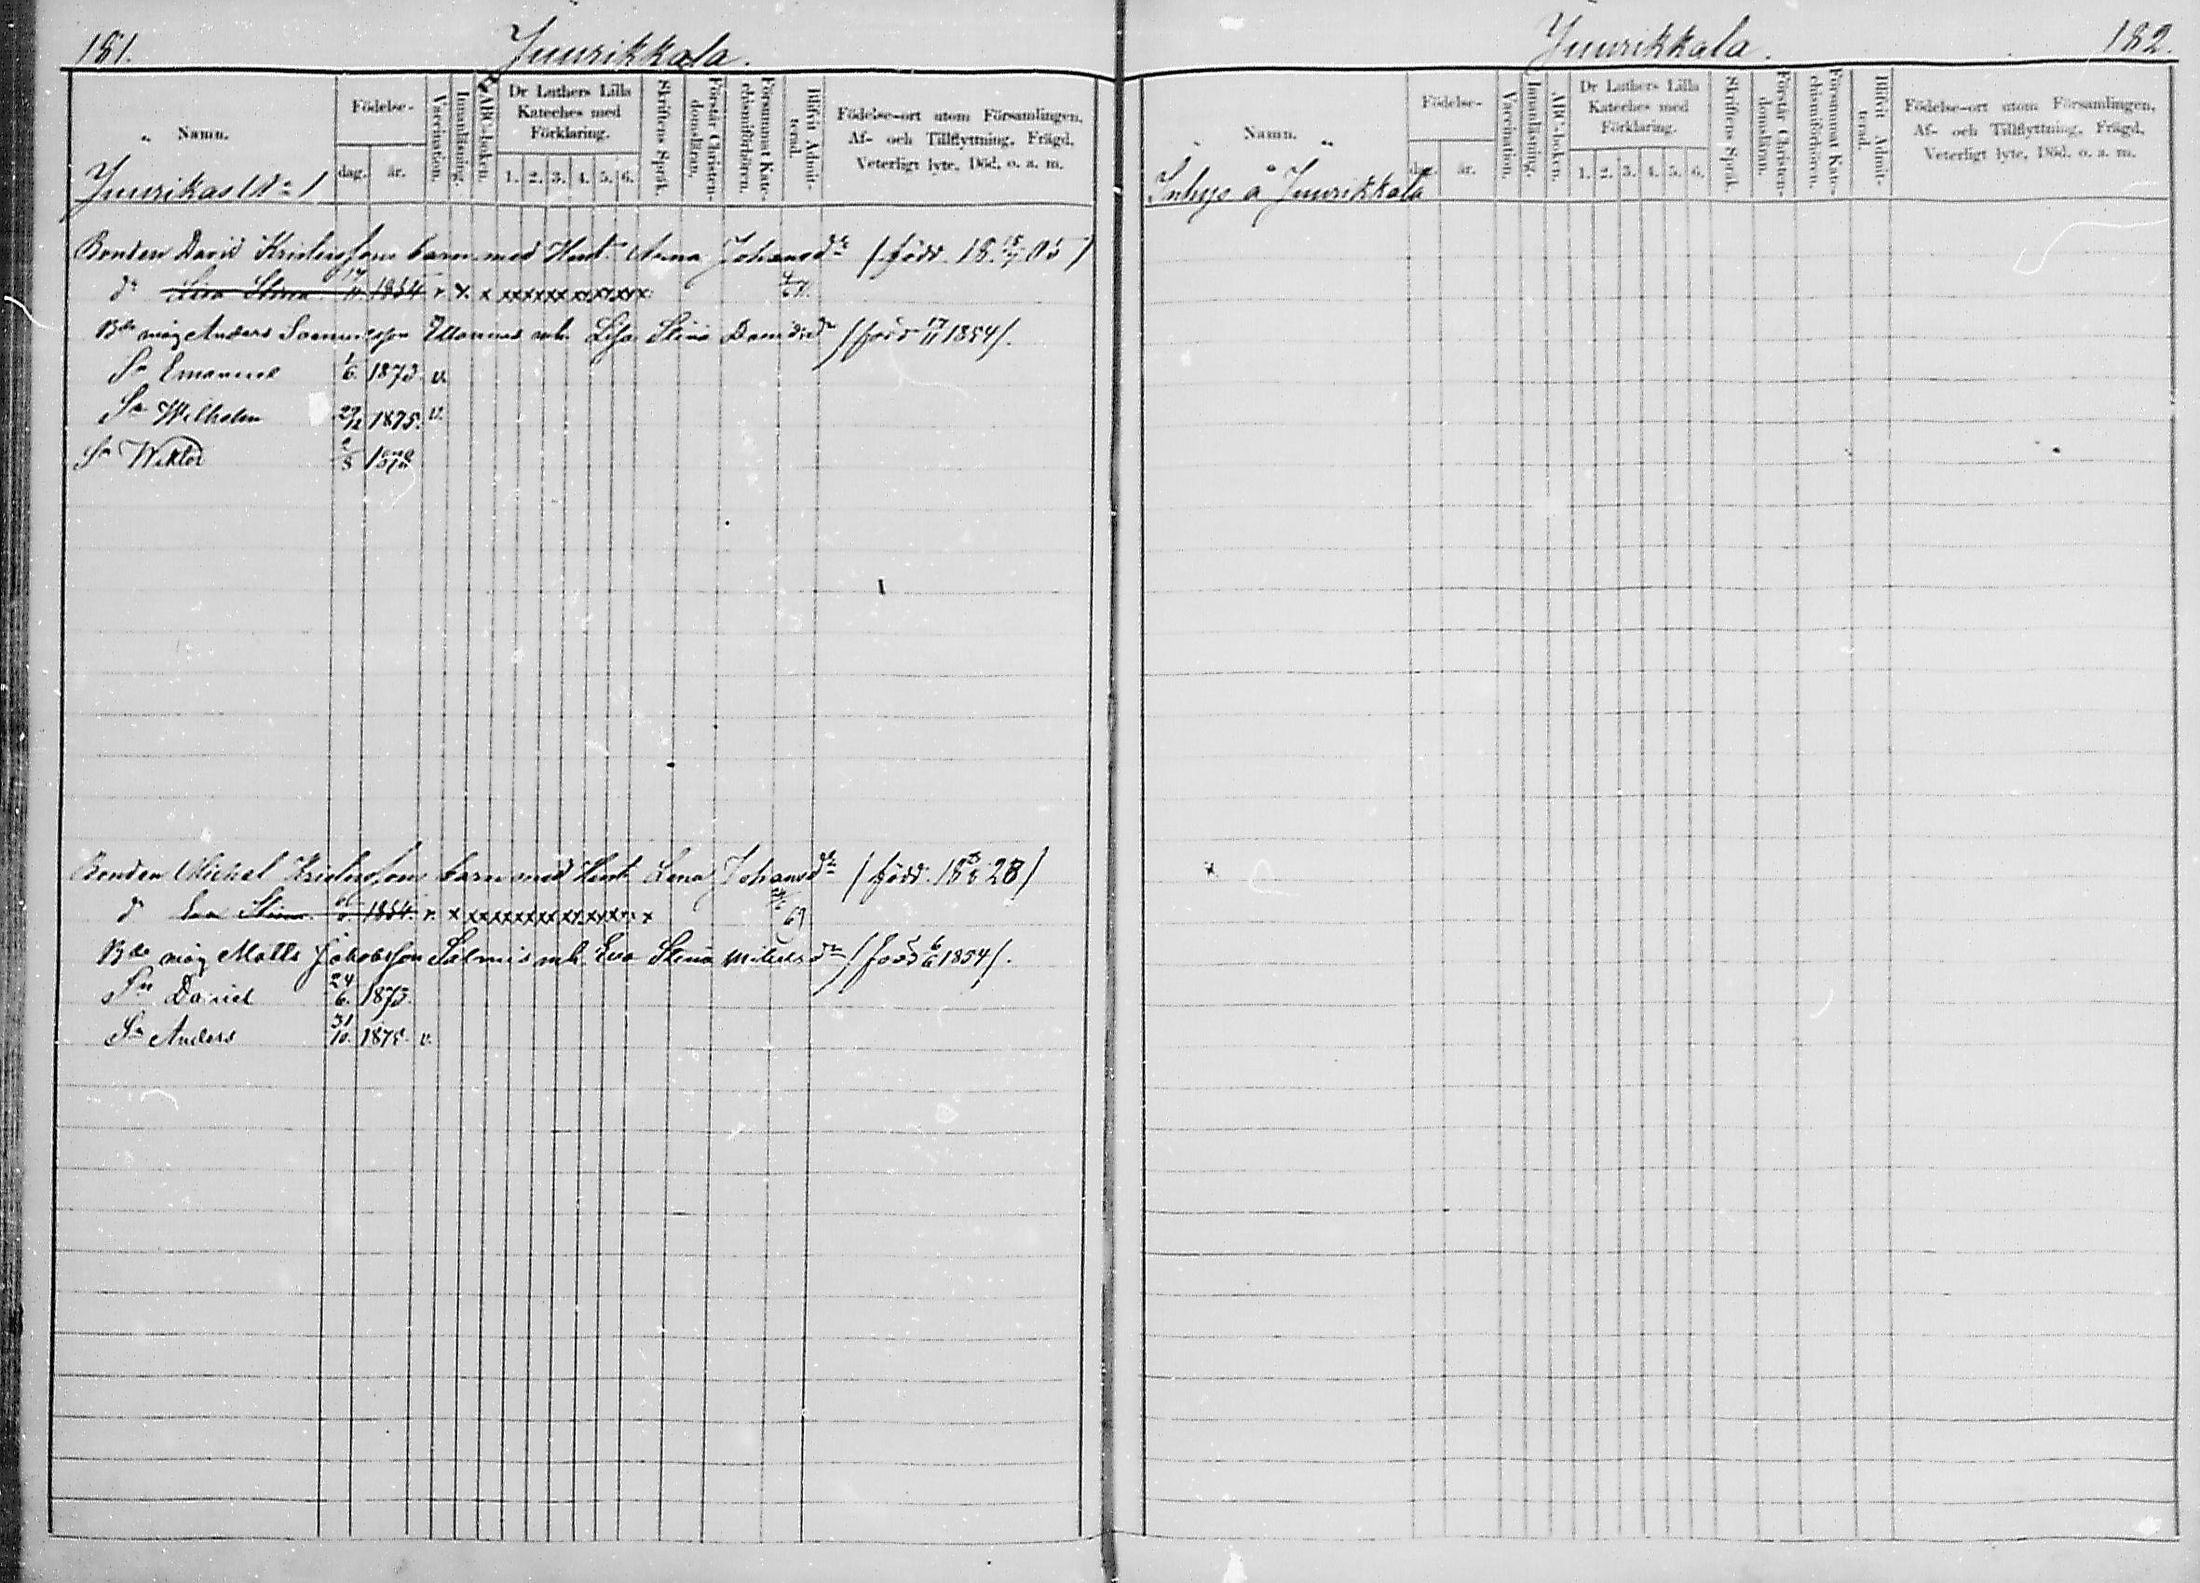 181. Juurikkala.
Namn. Födelse- dag. år. Vaccination. Innanläsning. ABC-boken. Dr Luthers Lilla Kateches med Förklaring. 1. 2. 3. 4. 5. 6. Skriftens Språk. Förstår Christendomsläran. Försummat Katechismiförhören. Blifvit Admitterad. Födelse-ort utom Församlingen, Af- och Tillflyttning, Frägd, Veterligt lyte, Död, o. a. m.
Juurikas No 1
Bonden David Kristersson barn med Hust. Anna Johansdr / född. 18
dr Stina 17/11 1854 v x x xxxxxxxxxxxxx
Bds måg Anders Samuelsson mh. Lisa Stina Davidsdr / född 17/11 1854/.
Sn Emanuel 1/6 1873 v.
Sn Wilhelm 29/12 1875. v.
Sn Wiktor
Bonden Michel Kristersson barn med Hust. Lena Johansdr / född. 18 28/
dr Eva Stina 1854. v. x xxxxxxxxxxxxxx x 69
Bds måg Matts Jakobsson Salmis mh. Eva Stina Mickelsdr / född 6/6 1854/.
Sn Daniel 24/6. 1873.
Sn Anders 31/10. 187 v.
Juurikkala. 182.
Namn. Födelse- dag. år. Vaccination. Innanläsning. ABC-boken. Dr Luthers Lilla Kateches med Förklaring. 1. 2. 3. 4. 5. 6. Skriftens Språk. Förstår Christendomsläran. Försummat Katechismiförhören. Blifvit Admitterad. Födelse-ort utom Församlingen, Af- och Tillflyttning, Frägd, Veterligt lyte, Död, o. a. m.
Inhys å Juurikkala